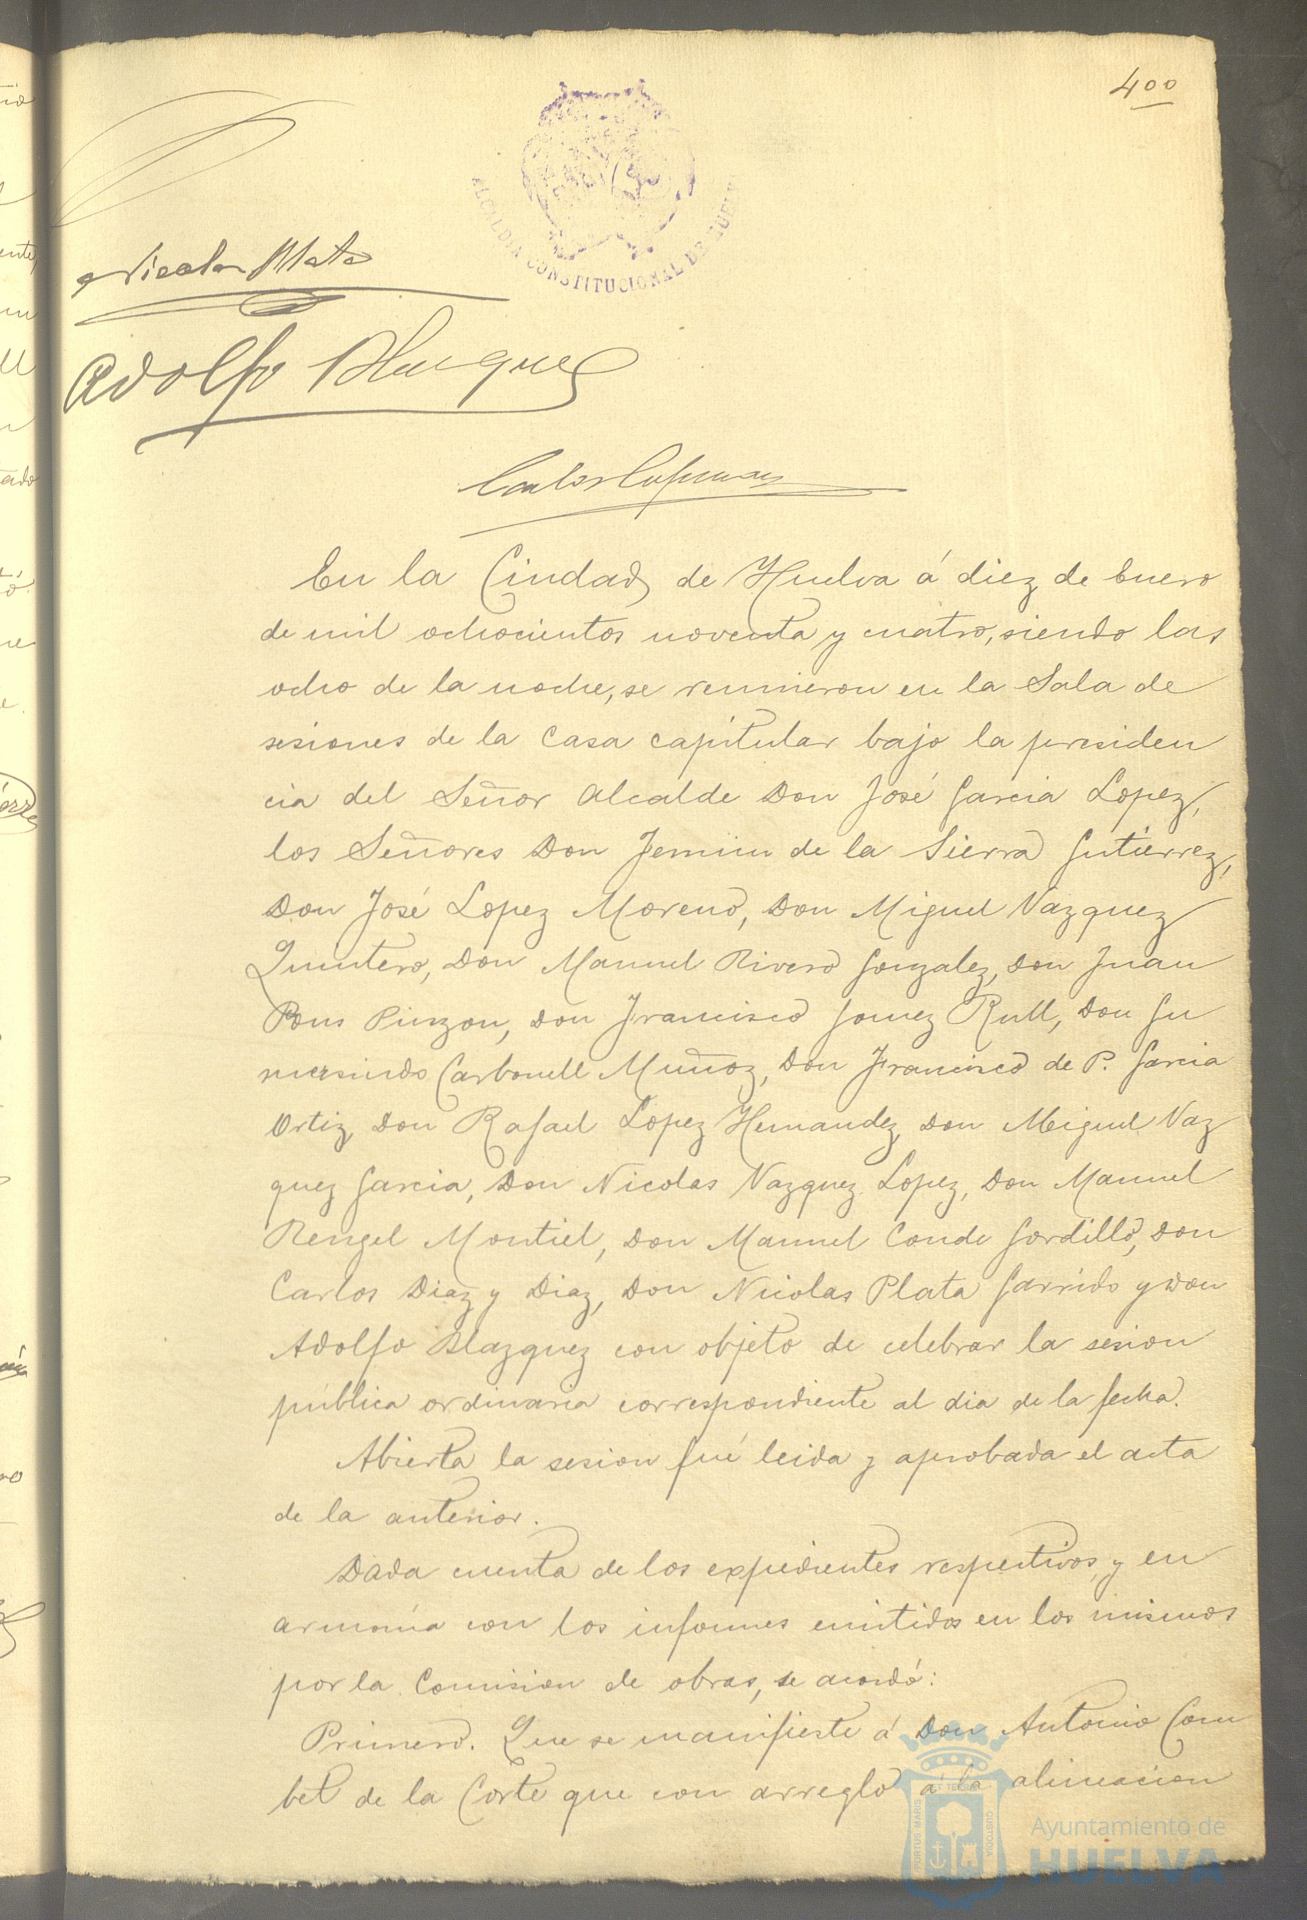 400
ALCALDIA CONSTITUCIONAL DE HUELVA
Nicolas Plata
Adolfo Blazquez
En la Ciudad de Huelva á diez de Enero
de mil ochocientos noventa y cuatro, siendo las
ocho de la noche, se reunieron en la Sala de
sesiones de la Casa capitular bajo la presiden
cia del Señor Alcalde Don José Garcia Lopez,
los Señores Don Fermin de la Sierra Gutiérrez,
Don José Lopez Moreno, Don Miguel Vazquez
Quintero, Don Manuel Rivero Gonzalez, Don Juan
Pons Pinzon, Don Francisco Gomez Rull, Don Gu
mersindo Carbonell Muñoz, Don Francisco de P. Garcia
Ortiz, Don Rafael Lopez Hernandez, Don Miguel Vaz
quez Garcia, Don Nicolas Vazquez Lopez, Don Manuel
Rengel Montiel, Don Manuel Conde Gordillo, Don
Carlos Diaz y Diaz, Don Nicolas Plata Garrido y Don
Adolfo Blazquez con objeto de celebrar la sesion
pública ordinaria correspondiente al dia de la fecha.
Abierta la sesion fué leida y aprobada el acta
de la anterior.
Dada cuenta de los expedientes respectivos, y en
armonía con los informes emitidos en los mismos
por la Comision de obras, se acordó:
Primero. Que se manifieste á Don Antonio Com
bet de la Corte que con arreglo á la alineacion
PORTUS MARIS
ET TERRAE
CUSTODIA
Ayuntamiento de
HUELVA